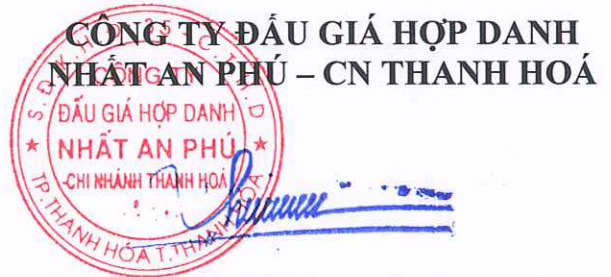 CÔNG TY ĐẤU GIÁ HỢP DANH
NHẤT AN PHÚ – CN THANH HOÁ
CÔNG TY
ĐẤU GIÁ HỢP DANH
NHẤT AN PHÚ
-CHI NHÁNH THANH HOÁ
TP. THANH HÓA T. THANH HÓA